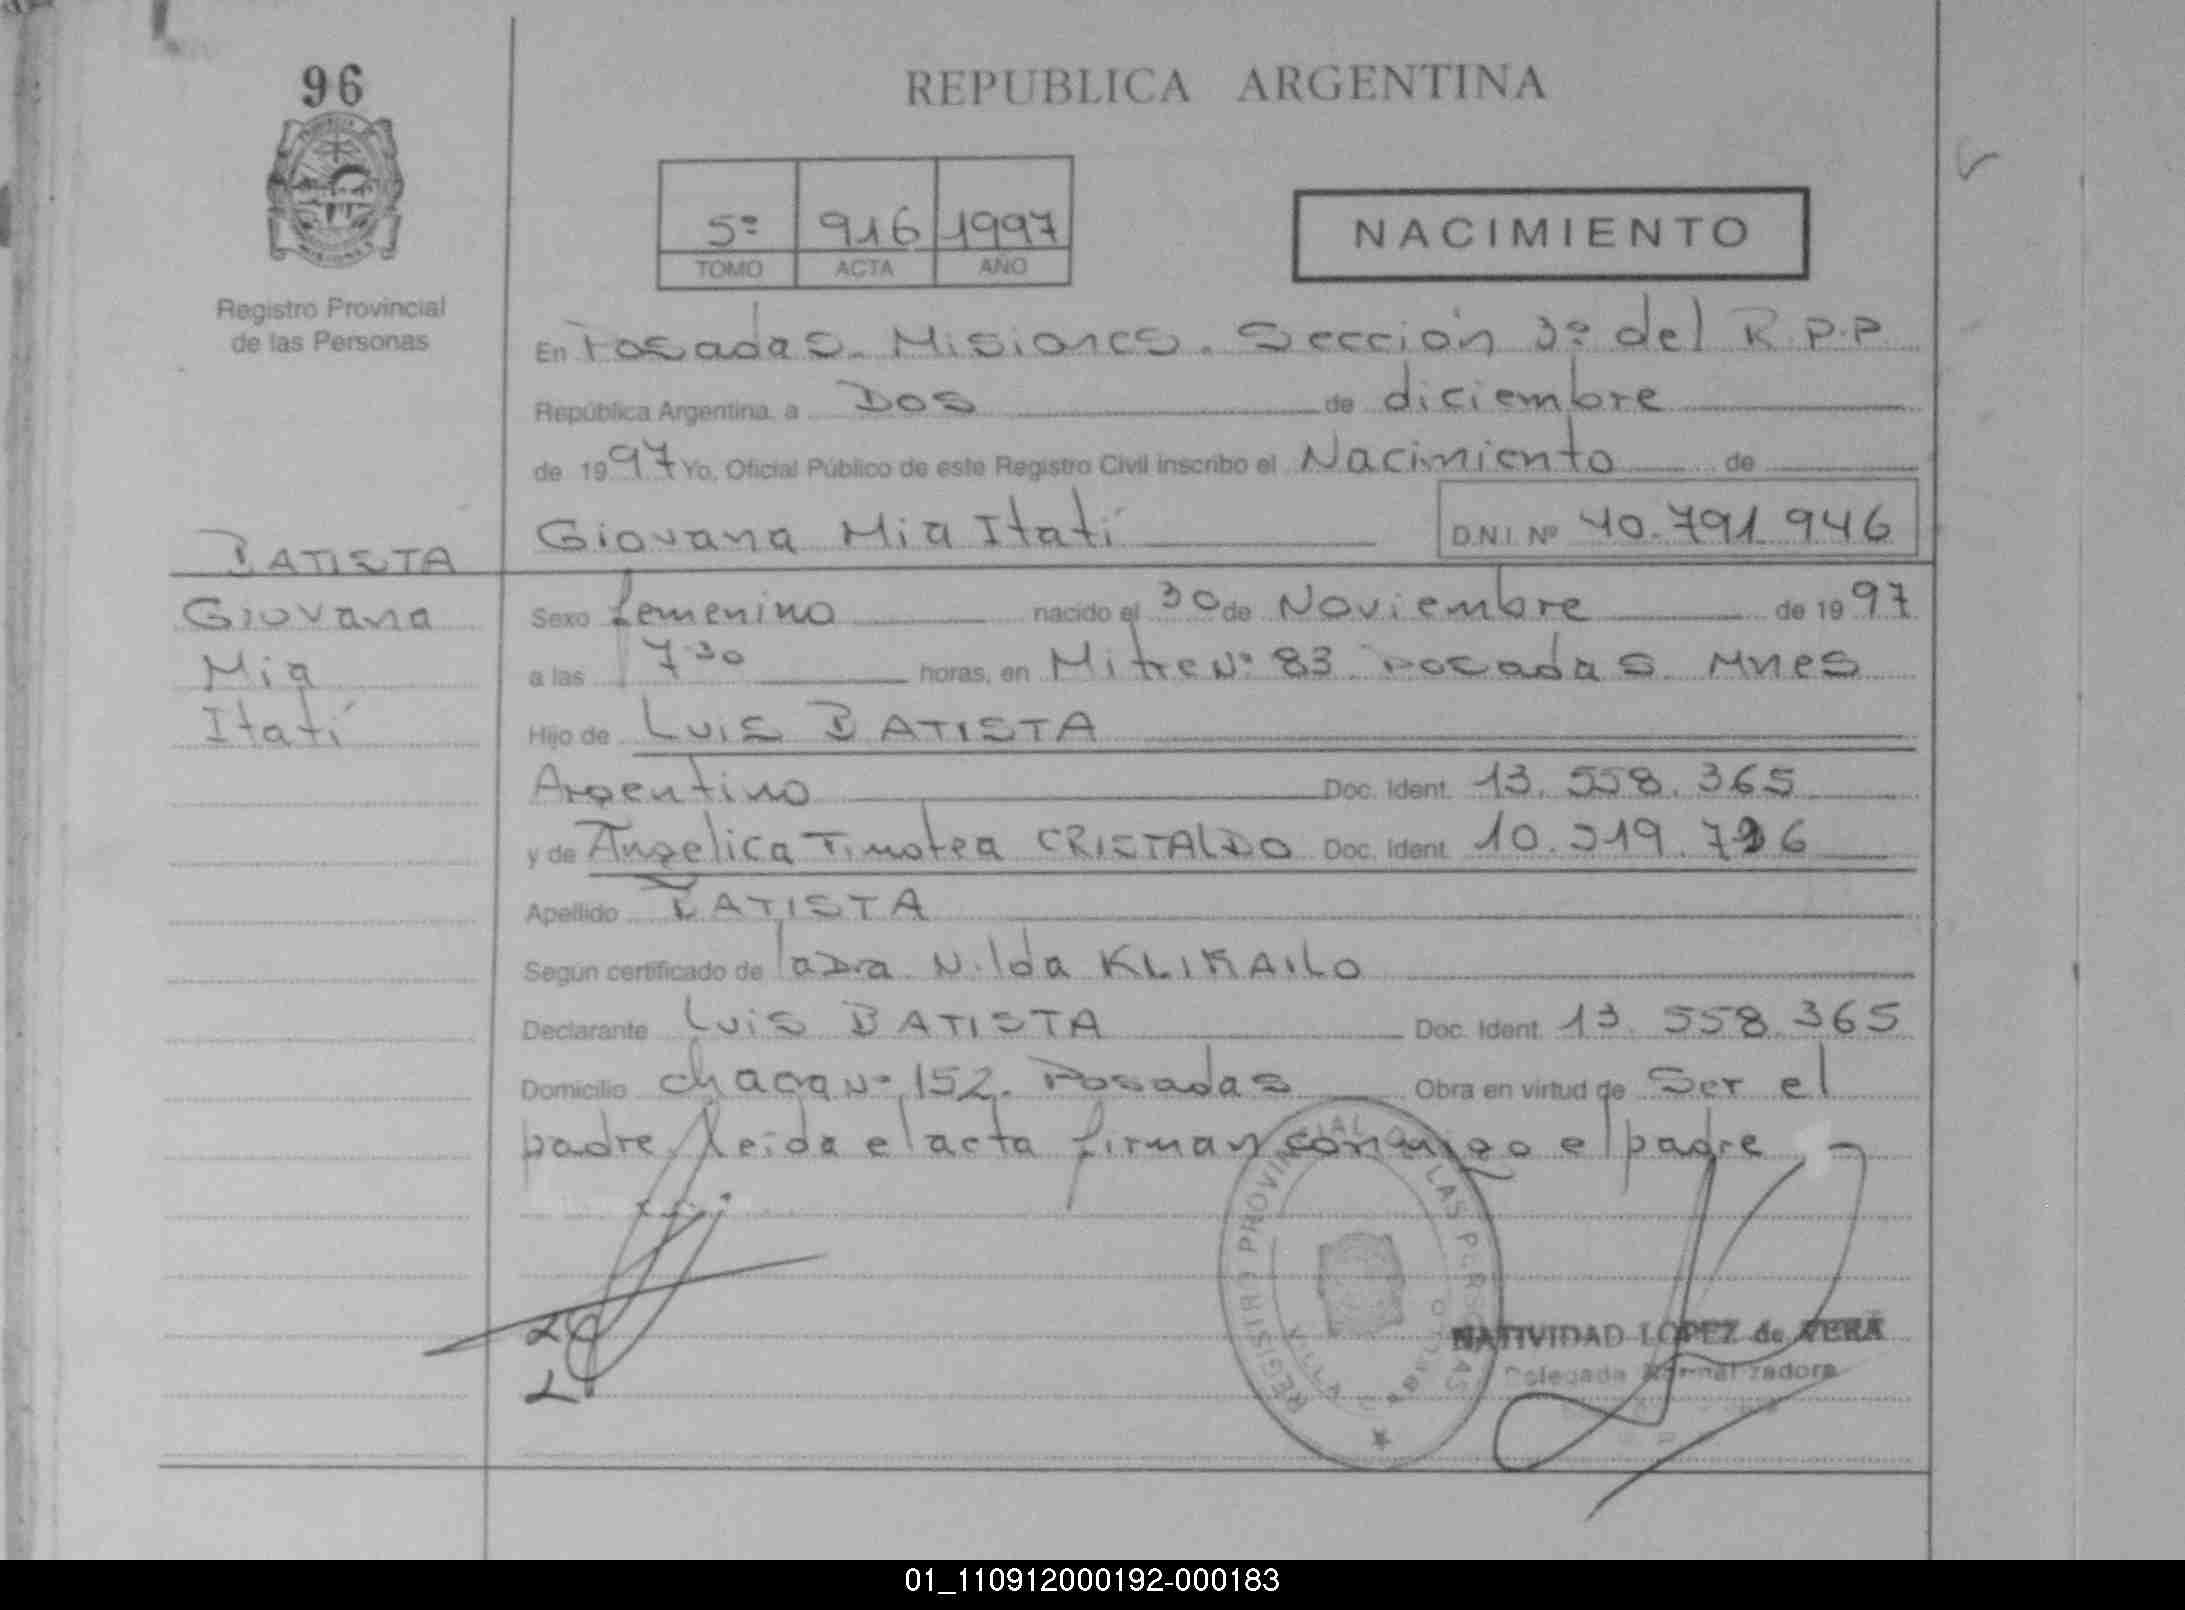 96
REPUBLICA ARGENTINA
5º 916 1997
TOMO ACTA AÑO
NACIMIENTO
Registro Provincial
de las Personas
En Posadas. Misiones. Sección 3º del R.P.P.
República Argentina, a Dos de diciembre
de 1997 Yo, Oficial Público de este Registro Civil inscribo el Nacimiento de
Giovana Mia Itatí D.N.I. Nº 40.791.946
BATISTA
Giovana
Mia
Itatí
Sexo femenino nacido el 30 de Noviembre de 1997
a las 7 30 horas, en Mitre Nº 83. Posadas. Mnes
Hijo de Luis BATISTA
Argentino Doc. Ident. 13.558.365
y de Angelica Timotea CRISTALDO Doc. Ident. 10.319.726
Apellido BATISTA
Según certificado de la Dra Nilda KLIKAILO
Declarante Luis BATISTA Doc. Ident. 13.558.365
Domicilio chacra Nº 152. Posadas Obra en virtud de Ser el
padre, leída el acta firman conmigo el padre
REGISTRO PROVINCIAL DE LAS PERSONAS
NATIVIDAD LOPEZ de VERA
Delegada Normalizadora
01_110912000192-000183